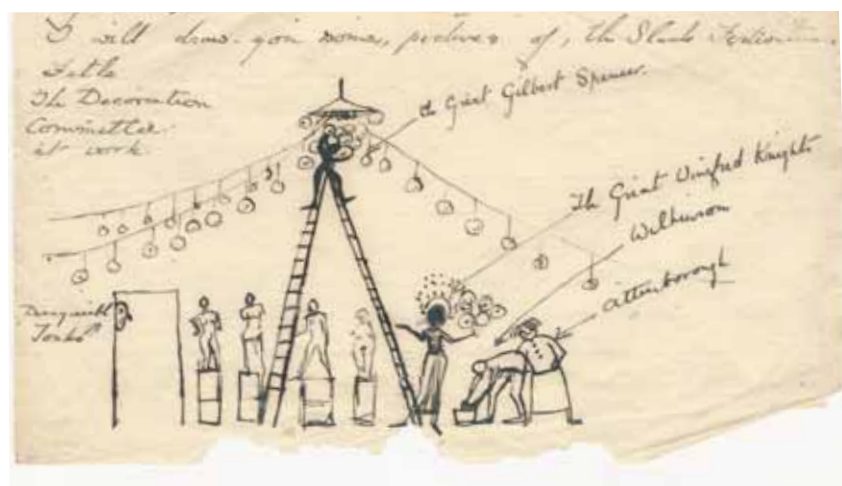 I will draw you some, pictures of, the Slade
Title
The Decoration
Committee
at work.
the Great Gilbert Spencer.
The Great Winifred Knights
Wilkinson
Attenborough
Tonks